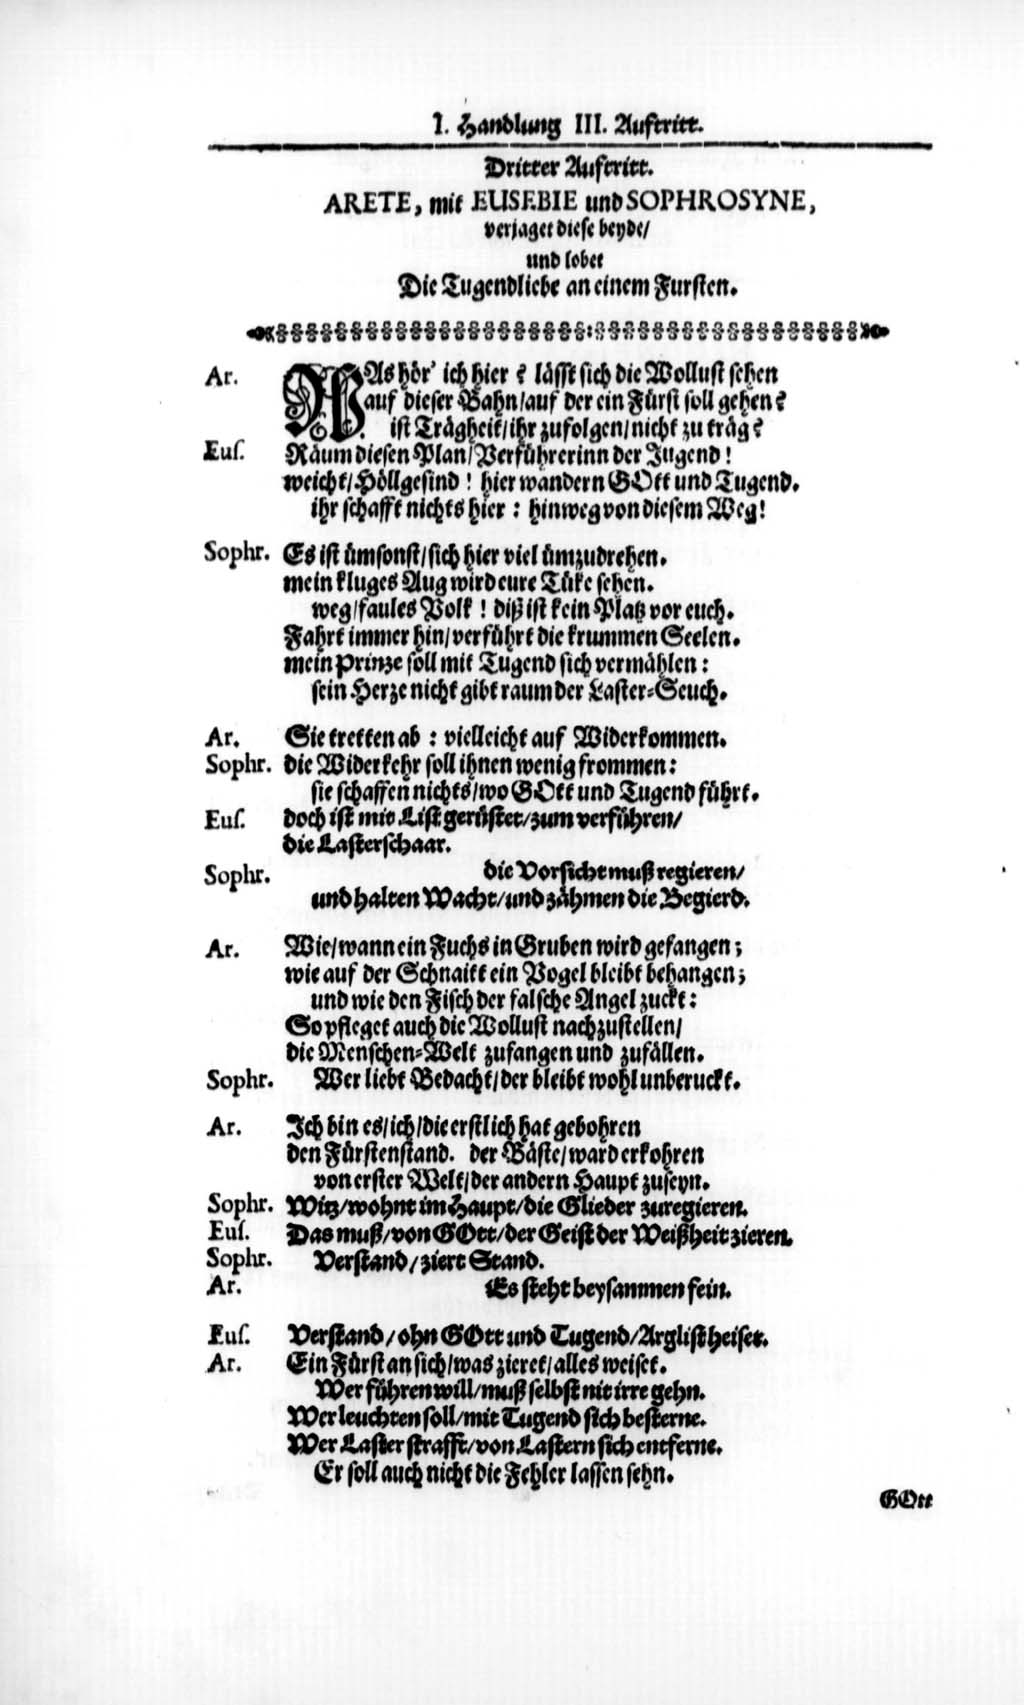 I. Handlung III. Auftritt.
Dritter Auftritt.
ARETE, mit EUSEBIE und SOPHROSYNE,
verjaget diese beyde/
und lobet
Die Tugendliebe an einem Fursten.
Ar. WAs hör' ich hier? lässt sich die Wollust sehen
auf dieser Bahn/auf der ein Fürst soll gehen?
ist Trägheit/ihr zufolgen/nicht zu träg?
Eus. Räum diesen Plan/Verführerinn der Jugend!
weicht/Höllgesind! hier wandern GOtt und Tugend.
ihr schafft nichts hier: hinweg von diesem Weg!
Sophr. Es ist ümsonst/sich hier viel ümzudrehen.
mein kluges Aug wird eure Tüke sehen.
weg/faules Volk! diß ist kein Platz vor euch.
Fahrt immer hin/verführt die krummen Seelen.
mein Prinze soll mit Tugend sich vermählen:
sein Herze nicht gibt raum der Laster-Seuch.
Ar. Sie tretten ab: vielleicht auf Widerkommen.
Sophr. die Widerkehr soll ihnen wenig frommen:
sie schaffen nichts/wo GOtt und Tugend führt.
Eus. doch ist mit List gerüstet/zum verführen/
die Lasterschaar.
Sophr. die Vorsicht muß regieren/
und halten Wacht/und zähmen die Begierd.
Ar. Wie/wann ein Fuchs in Gruben wird gefangen;
wie auf der Schnaitt ein Vogel bleibt behangen;
und wie den Fisch der falsche Angel zuckt:
So pfleget auch die Wollust nachzustellen/
die Menschen-Welt zufangen und zufällen.
Sophr. Wer liebt Bedacht/der bleibt wohl unberuckt.
Ar. Ich bin es/ich/die erstlich hat gebohren
den Fürstenstand. der Bäste/ward erkohren
von erster Welt/der andern Haupt zuseyn.
Sophr. Witz/wohnt im Haupt/die Glieder zuregieren.
Eus. Das muß/von GOtt/der Geist der Weißheit zieren.
Sophr. Verstand/ziert Stand.
Ar. Es steht beysammen fein.
Eus. Verstand/ohn GOtt und Tugend/Arglist heiset.
Ar. Ein Fürst an sich/was zieret/alles weiset.
Wer führen will/muß selbst nit irre gehn.
Wer leuchten soll/mit Tugend sich besterne.
Wer Laster strafft/von Lastern sich entferne.
Er soll auch nicht die Fehler lassen sehn.
GOtt